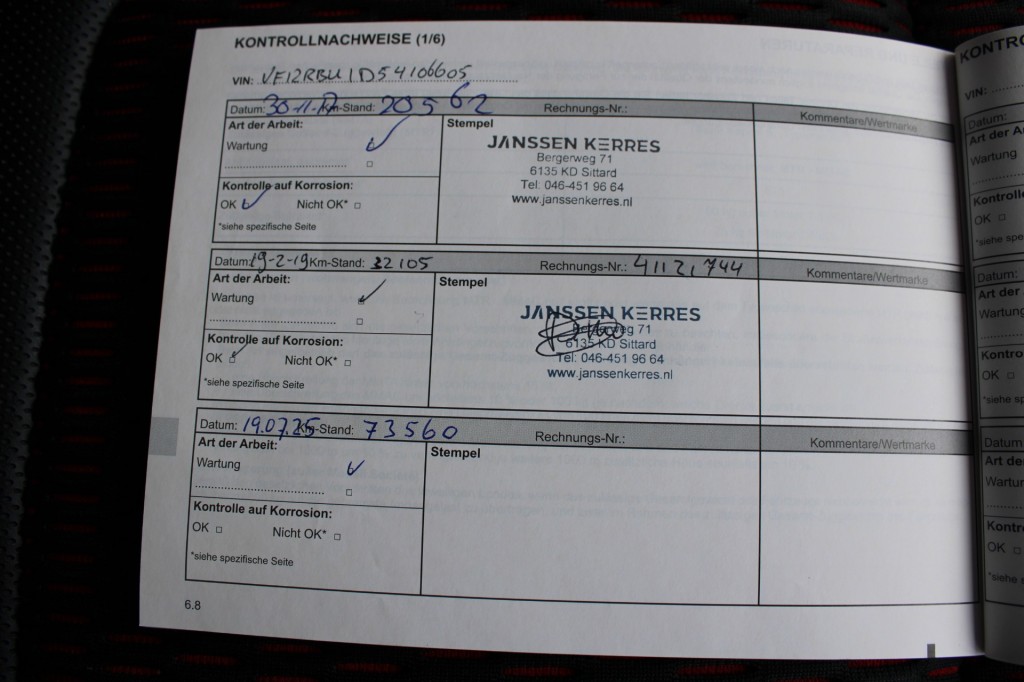 KONTROLLNACHWEISE (1/6)
VIN: VF12RBU1D54106605
Datum: 30-11-17 Km-Stand: 20562 Rechnungs-Nr.: Kommentare/Wertmarke
Art der Arbeit: Stempel
Wartung
JANSSEN KERRES
Bergerweg 71
6135 KD Sittard
Tel: 046-451 96 64
www.janssenkerres.nl
Kontrolle auf Korrosion:
OK Nicht OK*
*siehe spezifische Seite
Datum: 19-2-19 Km-Stand: 32105 Rechnungs-Nr.: 41121744 Kommentare/Wertmarke
Art der Arbeit: Stempel
Wartung
JANSSEN KERRES
Bergerweg 71
6135 KD Sittard
Tel: 046-451 96 64
www.janssenkerres.nl
Kontrolle auf Korrosion:
OK Nicht OK*
*siehe spezifische Seite
Datum: 19.07.25 Km-Stand: 73560 Rechnungs-Nr.: Kommentare/Wertmarke
Art der Arbeit: Stempel
Wartung
Kontrolle auf Korrosion:
OK Nicht OK*
*siehe spezifische Seite
6.8
KONTRO
VIN:
Datum:
Art der A
Wartung
Kontrolle
OK
*siehe spe
Datum:
Art der
Wartung
Kontro
OK
*siehe sp
Datum
Art de
Wartur
Kontr
OK
*siehe